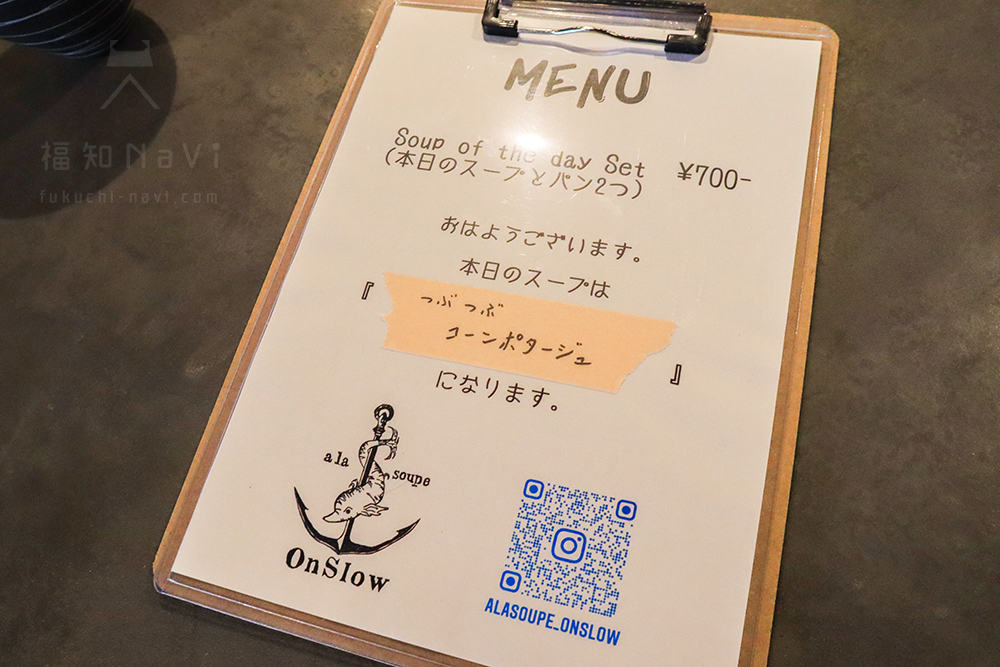 福知NaVi
fukuchi-navi.com
MENU
Soup of the day Set ¥700-
(本日のスープとパン2つ)
おはようございます。
本日のスープは
『つぶつぶ
コーンポタージュ』
になります。
ala soupe
OnSlow
ALASOUPE_ONSLOW